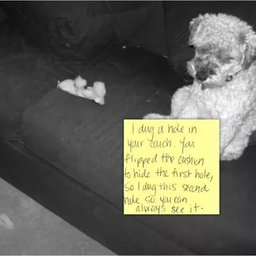 I dug a hole in
your couch. You
flipped the cushion
to hide the first hole,
so I dug this second
hole so you can
always see it.